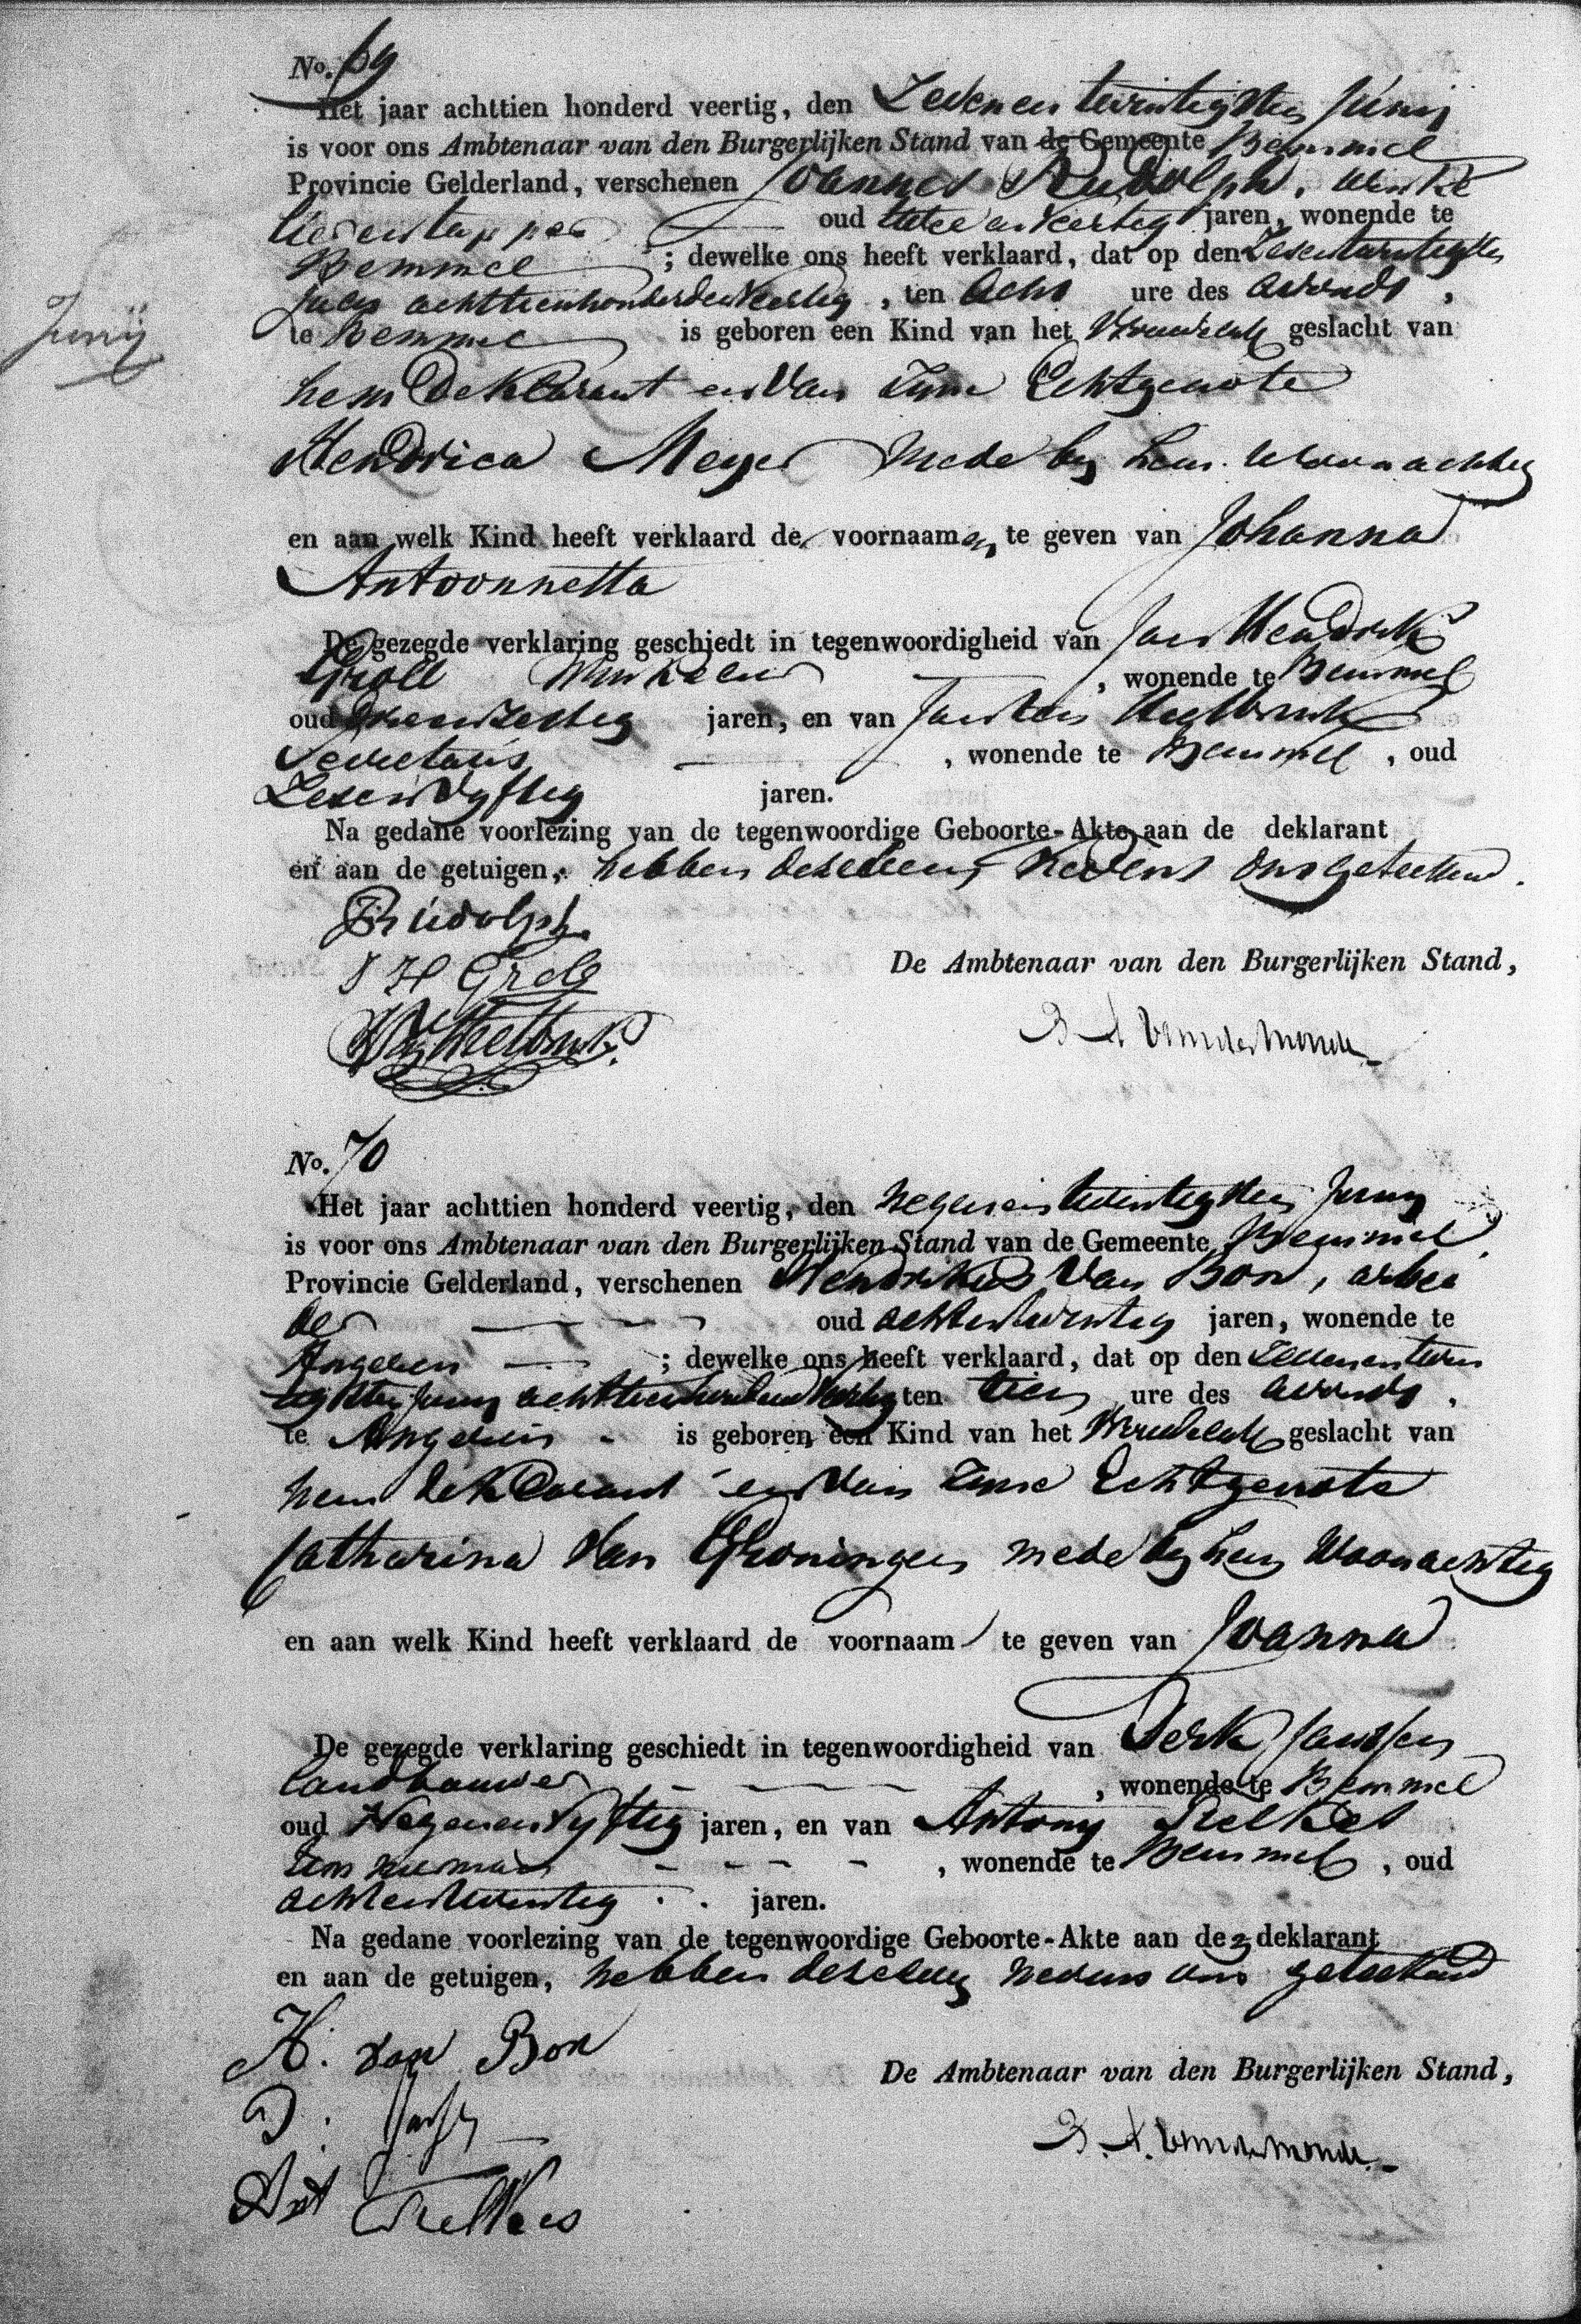 No. 69
Het jaar achttien honderd veertig, den Zevenentwintigsten Junij
is voor ons Ambtenaar van den Burgerlijken Stand van de Gemeente Bemmel
Provincie Gelderland, verschenen Joannes Rudolph,
oud twee en veertig jaren, wonende te
Bemmel ; dewelke ons heeft verklaard, dat op den
achttienhonderdenveertig, ten acht ure des avonds,
Junij
te Bemmel is geboren een Kind van het Vrouwelijk geslacht van
hem Deklarant en van zijne Echtgenote
Hendrica Meyer mede bij hem woonachtig
en aan welk Kind heeft verklaard de voornaamen te geven van Johanna
Antoonnetta
De gezegde verklaring geschiedt in tegenwoordigheid van Jan Hendrik
Groll , wonende te Bemmel
oud Drieenzestig jaren, en van
Secretaris , wonende te Bemmel, oud
Zesenvyftig jaren.
Na gedane voorlezing van de tegenwoordige Geboorte-Akte aan de deklarant
en aan de getuigen, hebben dezelven nevens ons geteekend.
Rudolph.
J H Groll
De Ambtenaar van den Burgerlijken Stand,
No. 70
Het jaar achttien honderd veertig, den negenentwintigsten Junij
is voor ons Ambtenaar van den Burgerlijken Stand van de Gemeente Bemmel
Provincie Gelderland, verschenen Hendrikus van Bon, arbei
der oud achtentwintig jaren, wonende te
Angeren ; dewelke ons heeft verklaard, dat op den Zevenentwin
tigsten Junij achttienhonderdveertig ten tien ure des avonds,
te Angeren is geboren een Kind van het Vrouwelijk geslacht van
hem deklarant en van zijne Echtgenote
Catharina van Groningen mede bij hem Woonachtig
en aan welk Kind heeft verklaard de voornaam te geven van Joanna
De gezegde verklaring geschiedt in tegenwoordigheid van Derk Janssen
landbouwer , wonende te Bemmel
oud Negenenvyftig jaren, en van Antony
timmerman , wonende te Bemmel, oud
achtentwintig jaren.
Na gedane voorlezing van de tegenwoordige Geboorte-Akte aan de deklarant
en aan de getuigen, hebben dezelven nevens ons geteekend
H. van Bon
De Ambtenaar van den Burgerlijken Stand,
D.
Ant